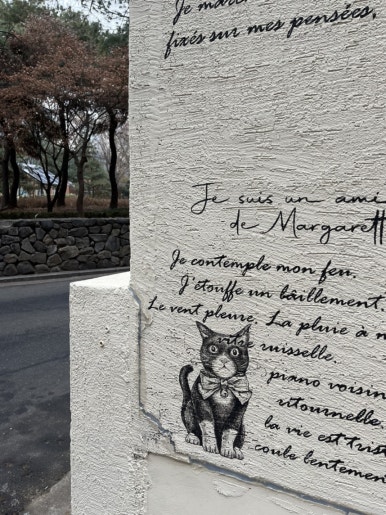 Je
fixés sur mes pensées,
Je suis un ami
de Margarett
Je contemple mon feu.
J'étouffe un bâillement.
Le vent pleure. La pluie à
vitre ruisselle.
piano voisin
ritournelle.
la vie est
coule lentement